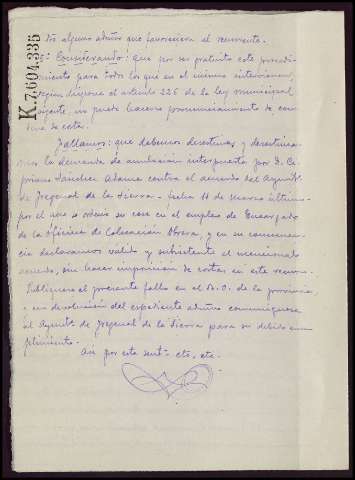 K.7,604,335
to alguno aduzco que favoreciera al recurrente.
Considerando: que por ser gratuito este procedi-
miento para todo los que en el mismo intervienen,
según dispone el artículo 226 de la ley municipal
vigente, no puede hacerse pronunciamiento de con-
dena de costas.
Fallamos: que debemos desestimar y desestima-
mos la demanda de anulación interpuesta por D. Ci-
priano Sánchez Adame contra el acuerdo del Ayuntº
de Fregenal de la Sierra - fecha 11 de Marzo último -
por el que se ordenó su cese en el empleo de Encargado
de la Oficina de Colocación Obrera, y en su consecuen-
cia declaramos valido y subsistente el mencionado
acuerdo, sin hacer imposición de costas en este recurso.
Publíquese el presente fallo en el B.O. de la provincia,
y en devolución del expediente advtvo comuníquese
al Ayuntº de Fregenal de la Sierra para su debido cum
plimiento.
Así por esta sentª etc, etc.